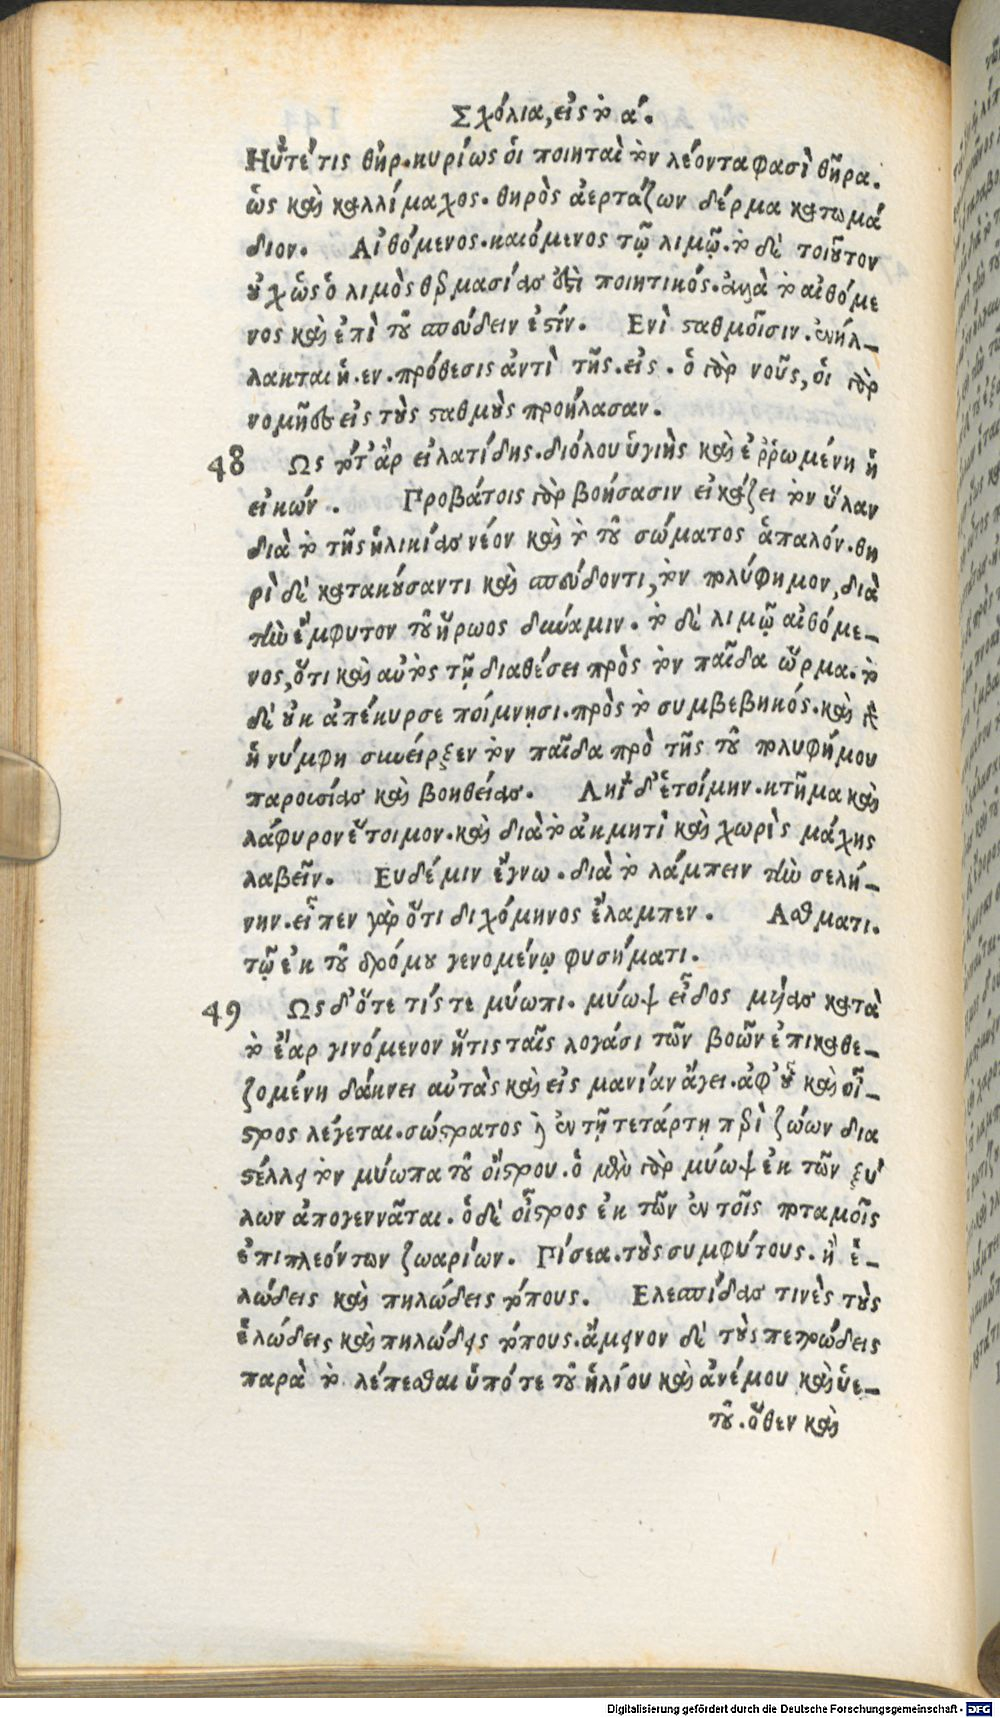 Σχόλια, εἰς τὸ α΄.
Ηὔτέ τις θήρ. κυρίως ὁι ποιηταὶ τὸν λέοντα φασὶ θῆρα.
ὡς καὶ καλλίμαχος. θηρὸς ἀερτάζων δέρμα κατωμά
διον. Αἰθόμενος. καιόμενος τῷ λιμῷ. τὸ δὲ τοιοῦτον
οὐχ ὡς ὁ λιμὸς θερμασίας ὅτι ποιητικός. ἀλλὰ τὸ αἰθόμε
νος καὶ ἐπὶ τοῦ σπεύδειν ἐστίν. Ενὶ σταθμοῖσιν. ἐνήλ-
λακται ἡ. εν. πρόθεσις ἀντὶ τῆς. εἰς. ὁ γὰρ νοῦς, ὁι γὰρ
νομῆες εἰς τοὺς σταθμοὺς προήλασαν.
48 Ως τότ' ἂρ εἰλατίδης. διόλου ὑγιὴς καὶ ἐῤῥωμένη ἡ
εἰκών. Προβάτοις γὰρ βοήσασιν εἰκάζει τὸν ὕλαν
διὰ τὸ τῆς ἡλικίας νέον καὶ τὸ τοῦ σώματος ἁπαλόν. θη
ρὶ δὲ κατακούσαντι καὶ σπεύδοντι, τὸν πολύφημον, διὰ
τὴν ἔμφυτον τοῦ ἥρωος δύναμιν. τὸ δὲ λιμῷ αἰθόμε-
νος, ὅτι καὶ αὐτὸς τῇ διαθέσει πρὸς τὸν παῖδα ὥρμα. τὸ
δὲ οὐκ ἀπέκυρσε ποίμνῃσι. πρὸς τὸ συμβεβηκός. καὶ γὰρ
ἡ νύμφη συνεῖρξεν τὸν παῖδα πρὸ τῆς τοῦ πολυφήμου
παρουσίας καὶ βοηθείας. Ληΐδ' ἑτοίμην. κτῆμα καὶ
λάφυρον ἕτοιμον. καὶ διὰ τὸ ἀκμητὶ καὶ χωρὶς μάχης
λαβεῖν. Ευδέμιν ἔγνω. διὰ τὸ λάμπειν τὴν σελή-
νην. εἶπεν γὰρ ὅτι διχόμηνος ἔλαμπεν. Ασθματι.
τῷ ἐκ τοῦ δρόμου γενομένῳ φυσήματι.
49 Ως δ' ὅτε τίς τε μύωπι. μύωψ εἶδος μυίας κατὰ
τὸ ἔαρ γινόμενον ἥτις ταῖς λογάσι τῶν βοῶν ἐπικαθε-
ζομένη δάκνει αὐτὰς καὶ εἰς μανίαν ἄγει. ἀφ' οὗ καὶ οἶ-
στρος λέγεται. σώστρατος ἢ ἐν τῇ τετάρτῃ περὶ ζώων δια
στέλλει τὸν μύωπα τοῦ οἴστρου. ὁ μὲν γὰρ μύωψ ἐκ τῶν ξύ
λων ἀπογεννᾶται. ὁ δὲ οἶστρος ἐκ τῶν ἐν τοῖς ποταμοῖς
ἐπιπλεόντων ζωαρίων. Πίσεα. τοὺς συμφύτους. ἢ ἑ-
λώδεις καὶ πηλώδεις τόπους. Ελεσπίδας τινὲς τοὺς
ἑλώδεις καὶ πηλώδεις τόπους. ἄμεινον δὲ τοὺς πετρώδεις
παρὰ τὸ λέπεσθαι ὑπό τε τοῦ ἡλίου καὶ ἀνέμου καὶ ὑε-
τοῦ. ὅθεν καὶ
Digitalisierung gefördert durch die Deutsche Forschungsgemeinschaft - DFG